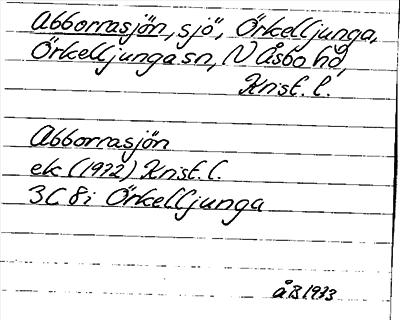 Abborrasjön, sjö, Örkelljunga,
Örkelljunga sn, N Åsbo hd,
Knist. l.
Abborrasjön
ek (1972) Knist. l.
3C 8i Örkelljunga
åB 1973